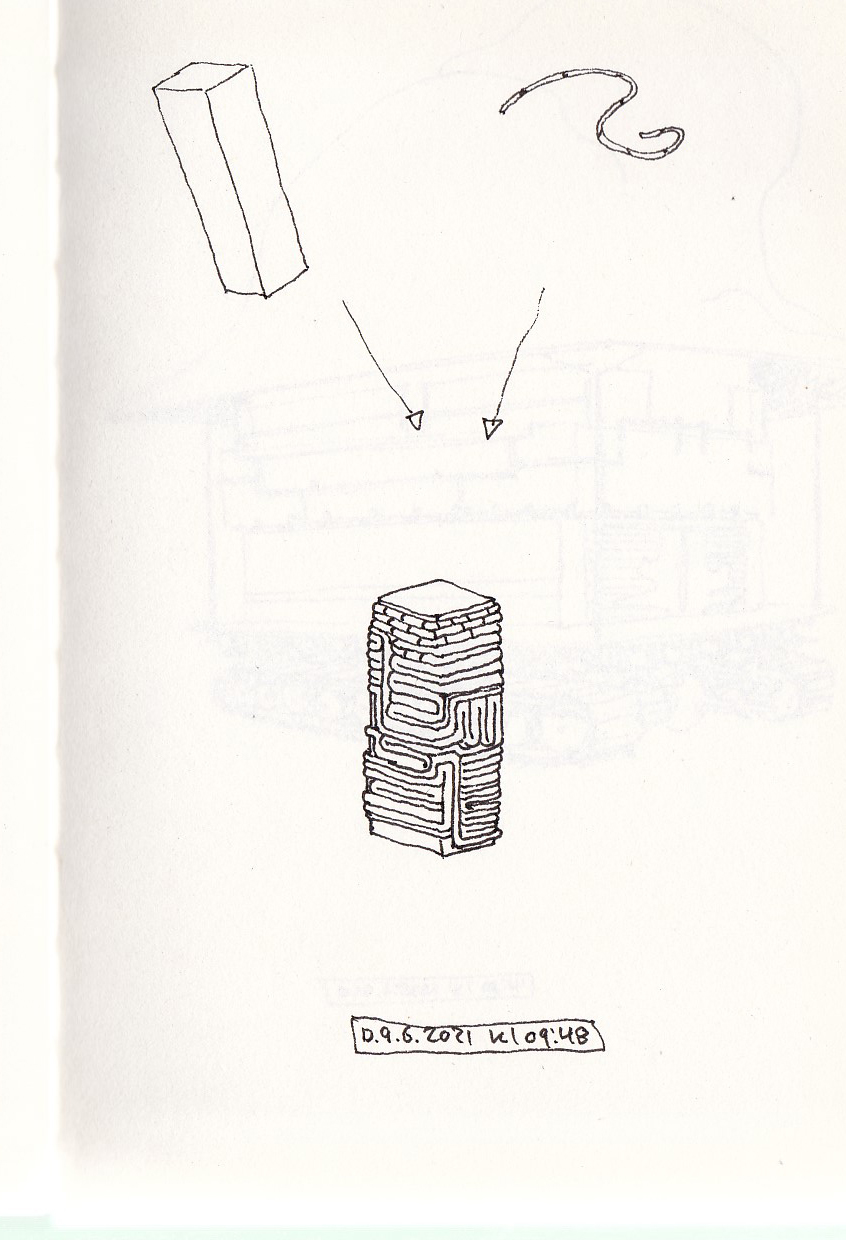 D.9.6.2021 kl 09:48